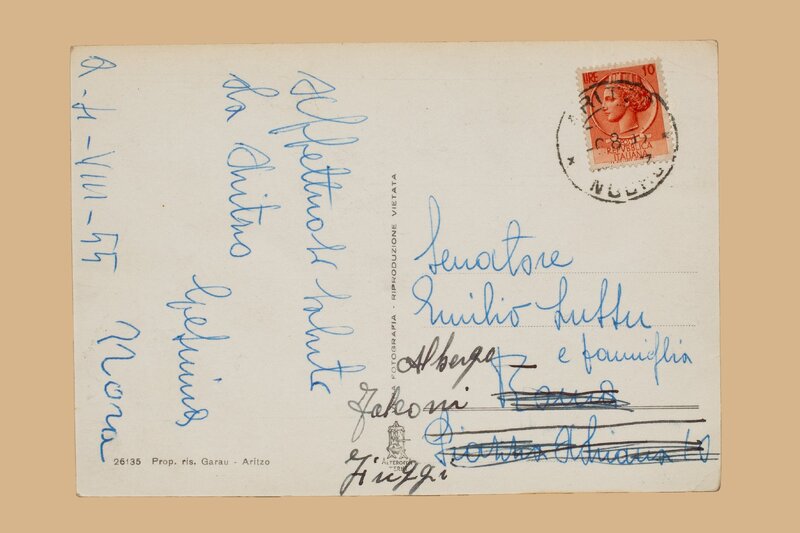 Affettuosi saluti
da Aritzo
Gesuina
Nora
9-4-VIII-55
26135 Prop. ris. Garau - Aritzo
FOTOGRAFIA - RIPRODUZIONE VIETATA
LIRE 10
REPVBBLICA
ITALIANA
NUORO
Senatore
Emilio Lussu
e famiglia
Roma
Piazza Adriana 10
Albergo
Falconi
Fiuggi